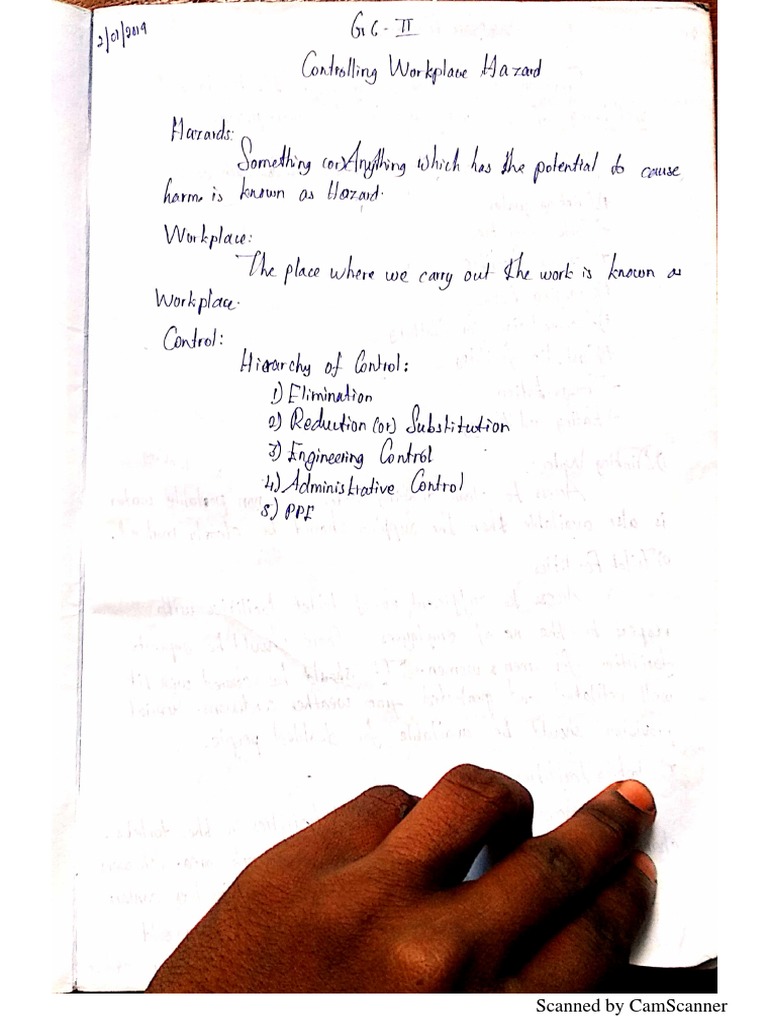 2/01/2019
GC-II
Controlling Workplace Hazard
Hazards:
Something (or) Anything which has the potential to cause
harm is known as Hazard.
Workplace:
The place where we carry out the work is known as
Workplace.
Control:
Hierarchy of Control:
1) Elimination
2) Reduction (or) Substitution
3) Engineering Control
4) Administrative Control
5) PPE
Scanned by CamScanner